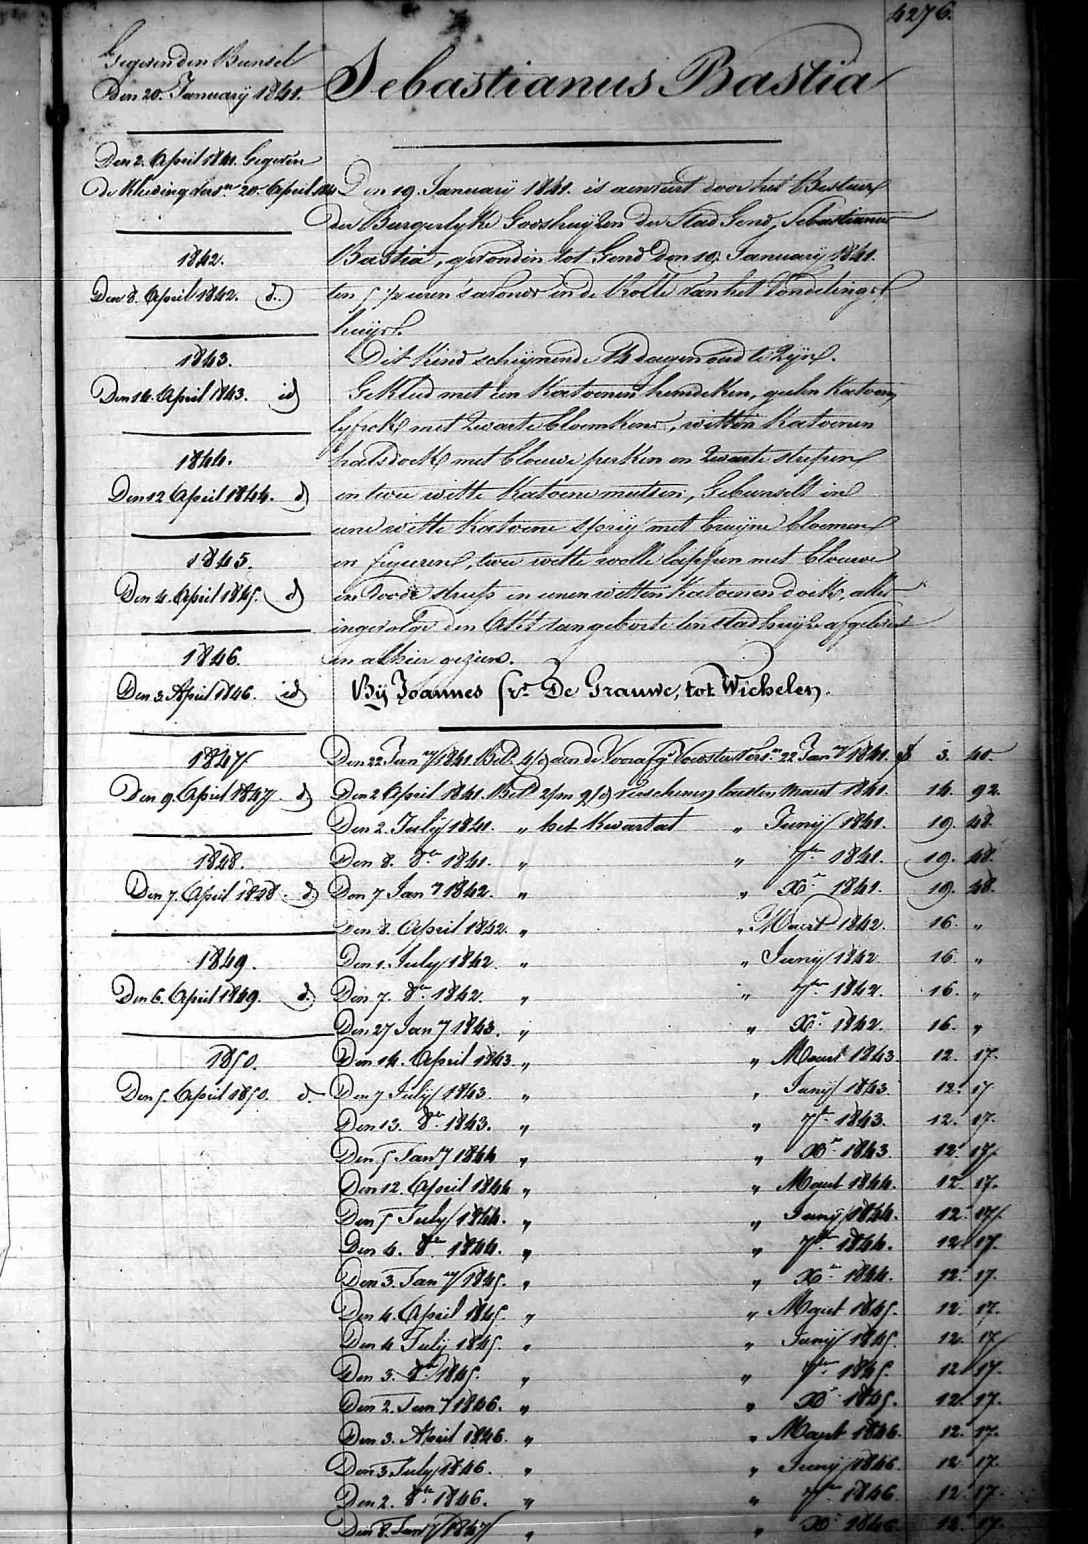 4276.
Gegeven den Bunsel
Den 20. Januarij 1841.
Den 2. April 1841. Gegeven
de Kleeding Versn 20. April 184
1842.
Den 8. April 1842. d.
1843.
Den 14. April 1843. id
1844.
Den 12 April 1844. d
1845.
Den 4. April 1845. d
1846.
Den 3. April 1846. id
1847
Den 9. April 1847 d
1848.
Den 7. April 1848. d
1849.
Den 6. April 1849. d.
1850.
Den 5 April 1850. d.
Sebastianus Bastia
Den 19. Januarij 1841. is aenveirt door het Bestuer
der Burgerlyke Godshuijzen der Stad Gend, Sebastianus
Bastia, gevonden tot Gend den 19. Januarij 1841.
ten 5 ½ uren s'avonds in de Rolle van het Vondelings
huijs.
Dit Kind schijnende 14 dagen oud te zijn.
Gekleed met een Katoenen hemdeken, geelen Katoen
lyfrok met zwarte bloemkens, witten Katoenen
halsdoek met blauwe perken en zwarte strepen
en twee witte Katoene mutsen, Gebunselt in
eene witte Katoene sprij met bruijne bloemen
en figueren, twee witte wolle lappen met blauwe
en roode streep en eenen witten Katoenen doek, alles
ingevolge den Akt van geboorte ten stadhuijze afgelevert
en alhier gezien.
Bij Joannes Frs De Grauwe, tot Wichelen.
Den 22 Jany 1841. Bet. 4/d aen de Voorafg. Voedster Versn 22 Jany 1841. 3. 40.
Den 2 April 1841. Bet 2/m 9/d verschenen laesten Maert 1841. 14. 92.
Den 2. July 1841. " het Kwartael " Junij 1841. 19. 48.
Den 8. 8er 1841. " " 7er 1841. 19. 48.
Den 7 Jany 1842. " " Xr 1841. 19. 48.
Den 8. April 1842. " " Maert 1842. 16. "
Den 1. July 1842. " " Junij 1842 16. "
Den 7. 8er 1842. " " 7er 1842. 16. "
Den 27 Jany 1843. " " Xr 1842. 16. "
Den 14. April 1843. " " Maert 1843. 12. 17.
Den 7 Julij 1843. " " Junij 1843 12. 17
Den 13. 8er 1843. " " 7er 1843. 12. 17.
Den 5 Jany 1844 " " Xr 1843 12. 17.
Den 12. April 1844 " " Maert 1844. 12. 17.
Den 5 July 1844. " " Junij 1844. 12. 17.
Den 4. 8er 1844. " " 7er 1844. 12. 17.
Den 3. Jany 1845. " " Xr 1844. 12. 17.
Den 4. April 1845. " " Maert 1845. 12. 17.
Den 4 Julij 1845. " " Junij 1845. 12. 17
Den 3. 8er 1845. " " 7er 1845. 12. 17.
Den 2. Jany 1846. " " Xr 1845. 12. 17.
Den 3. April 1846. " " Maert 1846. 12. 17.
Den 3 July 1846. " " Junij 1846. 12. 17.
Den 2. 8er 1846. " " 7er 1846 12. 17.
Den 8. Jany 1847 " " Xr 1846 12. 17.